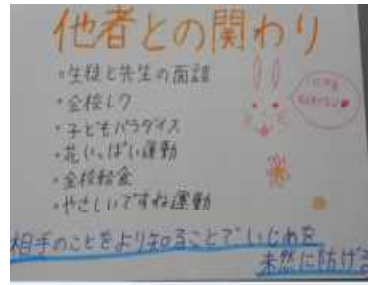 他者との関わり
・生徒と先生の面談
・全校レク
・子どもパラダイス
・花いっぱい運動
・全校給食
・やさしいですね運動
相手のことをより知ることでいじめを
未然に防げる